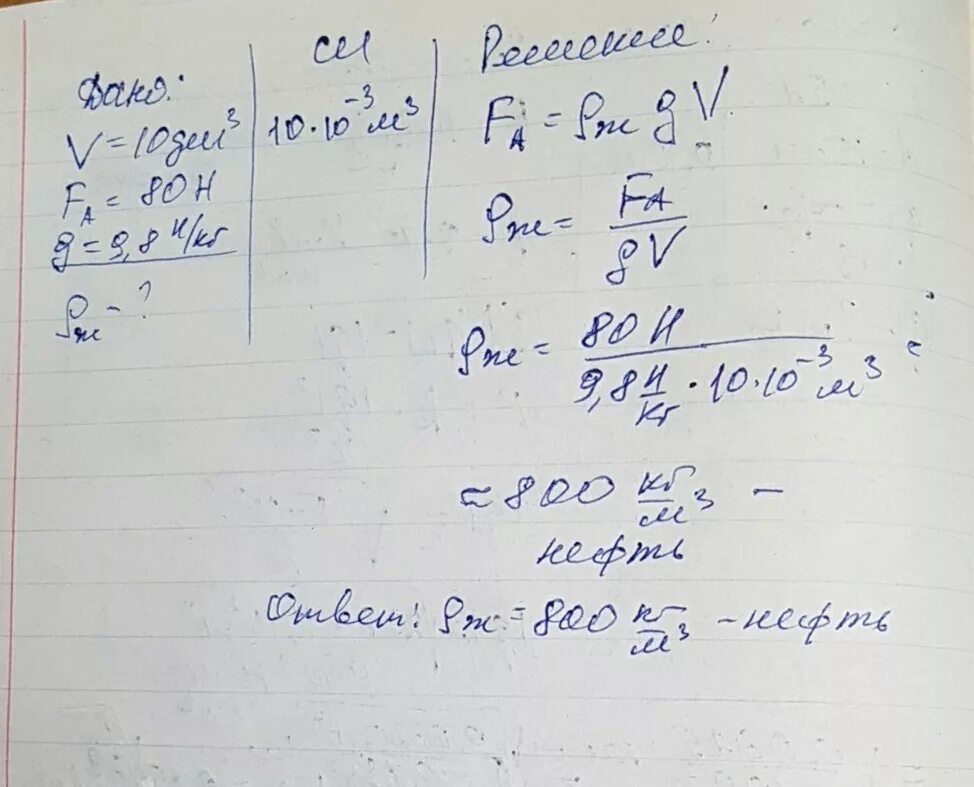 Дано:
V = 10 дм³
F_A = 80 Н
g = 9,8 Н/кг
ρж - ?
СИ
10·10⁻³ м³
Решение:
F_A = ρж g V
ρж = F_A / gV
ρж = 80 Н / 9,8 Н/кг · 10·10⁻³ м³ =
≈ 800 кг/м³ –
нефть
Ответ: ρж = 800 кг/м³ – нефть